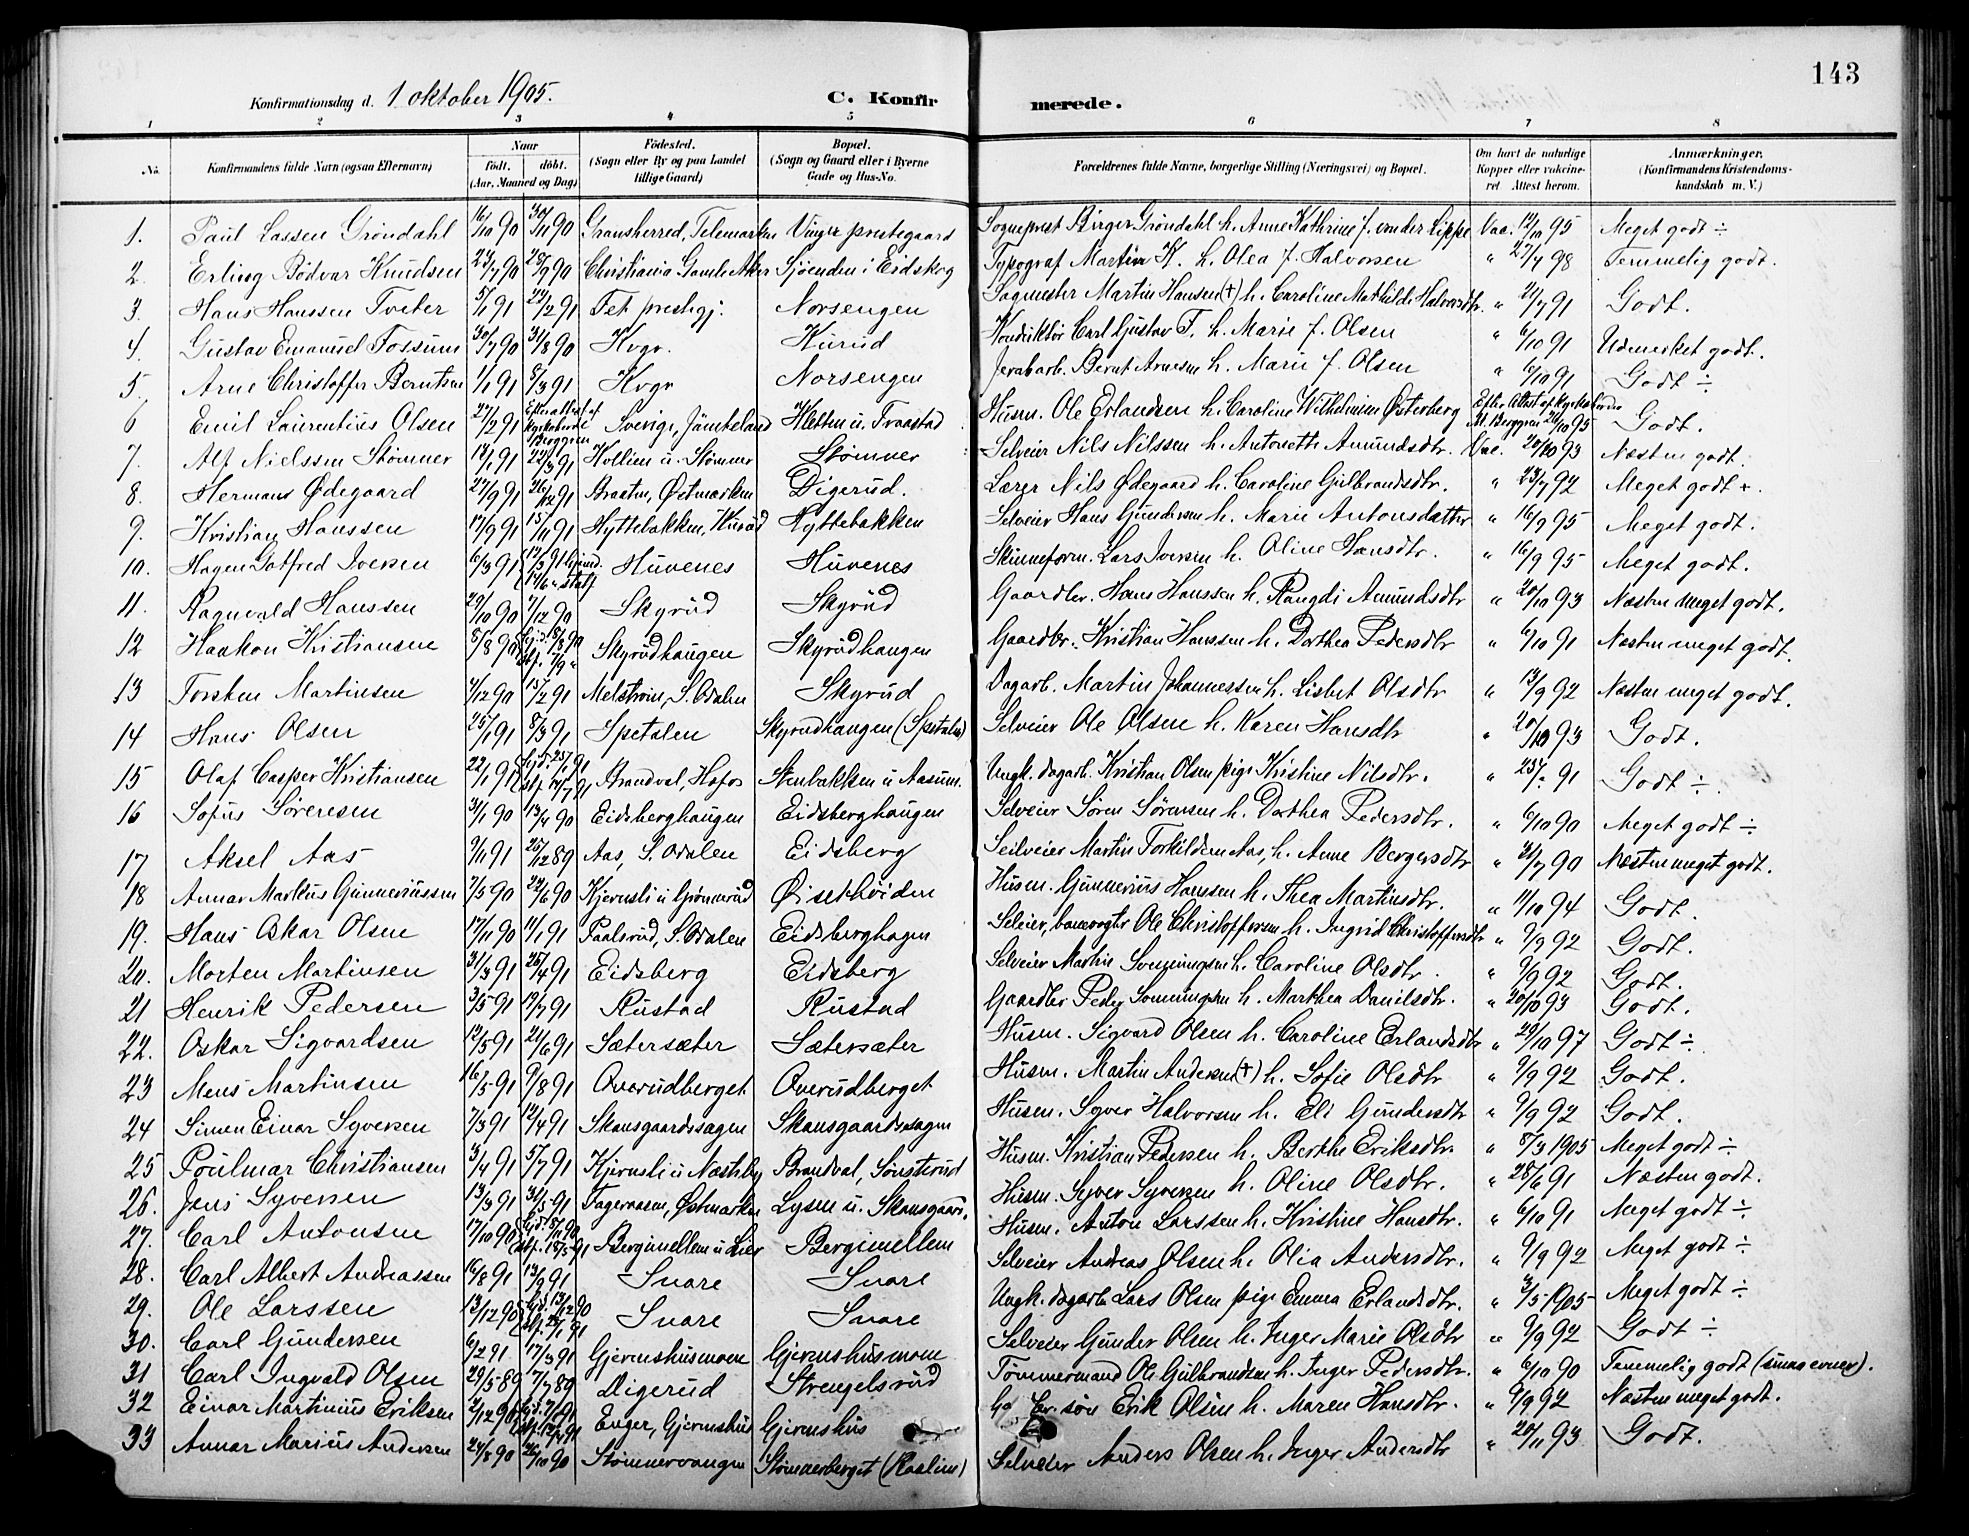 143
Konfirmationsdag d. 1 oktober 1905. C. Konfirmerede.
1 2 3 4 5 6 7 8
No. Konfirmandens fulde Navn (ogsaa Efternavn) Naar født. døbt. (Aar, Maaned og Dag) Fødested. (Sogn eller By og paa Landet tillige Gaard) Bopæl. (Sogn og Gaard eller i Byerne Gade og Hus-No. Forældrenes fulde Navne, borgerlige Stilling (Næringsvei) og Bopæl. Om havt de naturlige Kopper eller vaccineret Attest herom. Anmærkninger. (Konfirmandens Kristendomskundskab m. V.)
1. Paul Lassen Grøndahl 16/10 90 30/11 90 Gransherred, Telemarken Vinger prestegaard Sogneprest Birger Grøndahl h. Anne Kathrine f. von der Lippe Vac. 12/10 95 Meget godt ÷
2. Erling Bødvar Knudsen 27/7 90 28/9 90 Christiania Gamle Aker Sjøenden i Eidskog Typograf Martin K. h. Olea f. Halvorsen " 27/4 98 Temmelig godt.
3. Hans Hanssen Tveter 5/1 91 22/2 91 Fet prestegj. Norsengen Sagmester Martin Hansen (+) h. Caroline Mathilde Halvorsdtr. " 21/7 91 Godt.
4. Gustav Emanuel Fossum 30/7 90 31/8 90 Kvgr. Kurud Konduktør Carl Gustav F. h. Marie f. Olsen " 6/10 91 Udmerket godt.
5. Arne Christoffer Berntsen 1/1 91 8/3 91 Kvgr Norsengen Jernbarb. Bernt Arnesen h. Marie f. Olsen " 6/10 91 Godt ÷
6 Emil Laurentius Olsen 27/2 91 Efter attest af Kyrkoherde Berggren Sverige, Jämteland Kletten u. Traastad Husm. Ole Erlandsen h. Caroline Wilhelmine Østerberg Efter Attest af Kyrkoherde M. Berggren 24/10 95 Godt.
7. Alf Nielssen Stømner 18/1 91 22/3 91 Kollien u. Stømner Stømner Selveier Nils Nilssen h. Antonette Amundsdtr. Vac. 20/10 93 Næsten godt.
8. Hermans Ødegaard 27/9 91 26/12 91 Braaten, Østmarken Digerud. Lærer Nils Ødegaard h. Caroline Gulbrandsdtr. " 23/7 92 Meget godt +.
9. Kristian Hanssen 17/9 91 15/11 91 Hyttebakken, Kurud Hyttebakken Selveier Hans Gundersen h. Marie Antonsdatter " 16/9 95 Meget godt.
10. Hagen Gotfred Iversen 6/3 91 12/3 91 hjemd. 14/6 " stadf. Huvenes Huvenes Skinneform. Lars Iversen h. Oline Hansdtr. " 16/9 95 Meget godt.
11. Ragnvald Hanssen 29/10 90 7/12 90 Skyrud Skyrud Gaardbr. Hans Hanssen h. Rangdi Amundsdtr " 20/10 93 Næsten meget godt.
12 Haakon Kristiansen 8/8 90 hjd. 18/8 90 stf. 7/9 " Skyrudhaugen Skyrudhaugen Gaardbr. Kristian Hanssen h. Dorthea Pedersdtr " 6/10 91 Næsten meget godt.
13 Torsten Martinsen 4/12 90 15/2 91 Melstrøm, S. Odalen Skyrud Dagarb. Martin Johannessen h. Lisbet Olsdtr " 13/9 92 Næsten meget godt.
14 Hans Olsen 25/1 91 8/3 91 Spetalen Skyrudhaugen (Spetalen) Selveier Ole Olsen h. Karen Hansdtr " 20/10 93 Godt.
15 Olaf Casper Kristiansen 22/1 91 Brandval, Hofos Stenbakken u Aasum. Ungk. dagarb. Kristian Olsen pige Kristine Nilsdtr. " 91 Godt ÷.
16 Sofus Sørensen 31/1 90 13/4 90 Eidsberghaugen Eidsberghaugen Selveier Søren Sørensen h. Dorthea Pedersdtr. " 6/10 90 Meget godt ÷
17 Aksel Aas 9/11 91 25/12 89 Aas, S. Odalen Eidsberg Selveier Martin Torkildsen Aas, h. Anne Bergersdtr " 21/7 90 Næsten meget godt.
18 Annar Markus Gunneriussen 7/5 90 22/6 90 Kjernsli u Grønnerud Øisethøiden Husm. Gunnerius Hanssen h. Thea Martinsdtr. " 11/10 94 Godt.
19. Hans Oskar Olsen 17/11 90 11/1 91 Paalsrud, S. Odalen Eidsberghagen Selveier, banevogter Ole Christoffersen h. Ingrid Christoffersdtr " 9/9 92 Godt.
20. Morten Martinsen 31/3 91 25/4 91 Eidsberg Eidsberg Selveier Martin Svenningsen h. Caroline Olsdtr. " 9/9 92 Godt.
21 Henrik Pedersen 3/5 91 19/7 91 Rustad Rustad Gaardbr Peder Svenningsen h. Marthea Danilsdtr. " 20/10 93 Godt.
22. Oskar Sigvardsen 12/5 91 21/6 91 Sætersæter Sætersæter Husm. Sigvard Olsen h. Caroline Erlandsdtr " 29/10 97 Godt ÷.
23 Mens Martinsen 16/5 91 9/8 91 Overudberget Overudberget Husm. Martin Andersen (+) h. Sofie Olsdtr " 9/9 92 Godt.
24 Simen Einar Syversen 7/3 91 12/4 91 Skansgaardssagen Skansgaardssagen Husm. Syver Halvorsen h. Eli Gundersdtr " 9/9 92 Godt.
25 Poulmar Christiansen 3/4 91 5/7 91 Kjernsli u Næsteby Brandval, Sønsterud Husm. Kristian Pedersen h. Berthe Eriksdtr. " 8/3 1905 Meget godt ÷
26. Jens Syversen 13/3 91 31/5 91 Fageraasen, Østmarken Lysen u. Skansgaard. Husm. Syver Syversen h. Oline Olsdtr. " 28/6 91 Næsten godt.
27. Carl Antonsen 17/10 90 hjd. 18/11 90 stf. 18/5 91 Bergimellem u Lier Bergimellem Husm. Anton Larssen h. Kristine Hansdtr. " 6/10 91 Meget godt ÷
28. Carl Albert Andreassen 16/8 91 13/9 91 Snare Snare Selveier Andreas Olsen h. Olia Andersdtr. " 9/9 92 Meget godt ÷
29. Ole Larssen 13/12 90 Snare Snare Ungk. dagarb Lars Olsen pige Emma Erlandsdtr. " 3/5 1905 Meget godt ÷
30. Carl Gundersen 6/2 91 17/3 91 Gjermshusmoen Gjermshusmoen Selveier Gunder Olsen h. Inger Marie Olsdtr " 9/9 92 Godt ÷
31 Carl Ingvald Olsen 29/5 89 7/7 89 Digerud Strengelsrud Tømmermand Ole Gulbrandsen h. Inger Pedersdtr. " 6/10 90 Temmelig godt (smaa evner).
32 Einar Martinius Eriksen 2/12 90 Enger, Gjermshus Gjermshus Gbr. søn Erik Olsen h. Maren Hansdtr. " 9/9 92 Næsten meget godt.
33 Annar Marius Andersen 24/8 90 26/10 90 Stømnervangen Stømnerberget (Raalien) Selveier Anders Olsen h. Inger Andersdtr " 20/11 93 Godt.